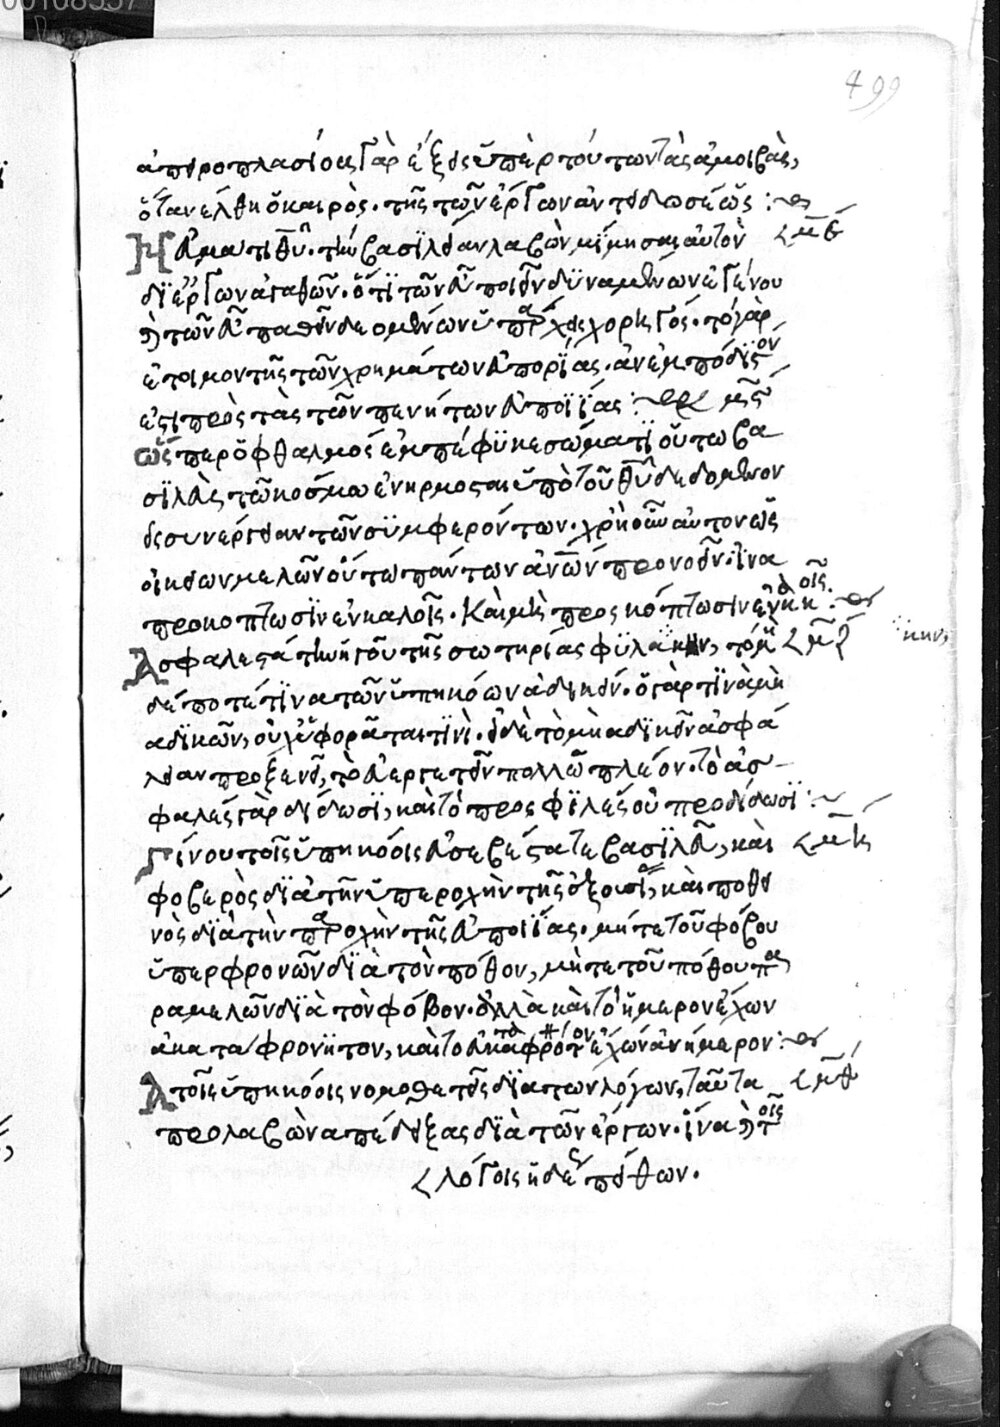 499
ἀπειροπλασίους γὰρ ἕξεις ὑπὲρ τούτων τὰς ἀμοιβὰς,
ὅταν ἔλθη ὁ καιρὸς τῆς τῶν ἔργων ἀντιδώσεως :~
Νᾶμα τι θῦ τὴν βασιλείαν λαβὼν μίμησαι αὐτὸν
δι ἔργων ἀγαθῶν. ὅτι τῶν εὖ ποιεῖν δυναμένων ἐγένου
καὶ τῶν εὖ παθεῖν δεομένων ὑπάρχεις χορηγός. τὸ γὰρ
ἕτοιμον τῆς τῶν χρημάτων εὐπορίας. ἀνεμπόδιστον
ἐστι πρὸς τὰς τῶν πενήτων εὐποιΐας :~ μϛ
ὥσπερ ὀφθαλμός ἐμπέφυκε σώματι οὕτω βα
σιλεὺς τῶ κόσμω ἐνήρμοσται ὑπὸ τοῦ θῦ δεδομένον
εἰς συνεργείαν τῶν συμφερόντων. χρὴ οὖν αὐτον ὡς
οἰκείων μελῶν οὕτω πάντων ἀνῶν προνοεῖν. ἵνα
προκοπτωσιν ἐν καλοῖς. καὶ μὴ προσκόπτωσιν ἐν κακοῖς :~
Ἀσφαλεστάτην ἡγοῦ τῆς σωτηρίας φυλακὴν, τὸ μὴ μζ
ϊκην,
δέποτέ τινα τῶν ὑπηκόων ἀδικεῖν. ὁ γάρ τινὰ μὴ
ἀδικῶν, οὐχ ὑφορᾶται τινὶ. εἰ δὲ τὸ μὴ ἀδικεῖν ἀσφά
λειαν προξενεῖ, τὸ εὐεργετεῖν πολλῶ πλέον. τὸ ἀσ-
φαλές γὰρ δίδωσι, καὶ τὸ προσφιλές οὐ προδίδωσι :~
Γίνου τοῖς ὑπηκόοις εὐσεβέστατε βασιλεῦ, καὶ μη
φοβερὸς διὰ τὴν ὑπεροχὴν τῆς ἐξουσίας, καὶ ποθει
νὸς διὰ τὴν παροχὴν τῆς εὐποιΐας. μήτε τοῦ φόβου
ὑπερφρονῶν διὰ τὸν πόθον, μήτε τοῦ πόθου πα
ραμελῶν διὰ τὸν φόβον. ἀλλὰ καὶ τὸ ἥμερον ἔχων
ἀκαταφρόνητον, καὶ τὸ εὐκαταφρόνητον ἔχων ἀνήμερον :~
Ἃ τοῖς ὑπηκόοις νομοθετεῖς διὰ των λόγων, ταῦτα μθ
προλαβὼν ἀπέδειξας διὰ τῶν ἔργων. ἵνα καὶ τοῖς
λόγοις ἡδέως πείθων.